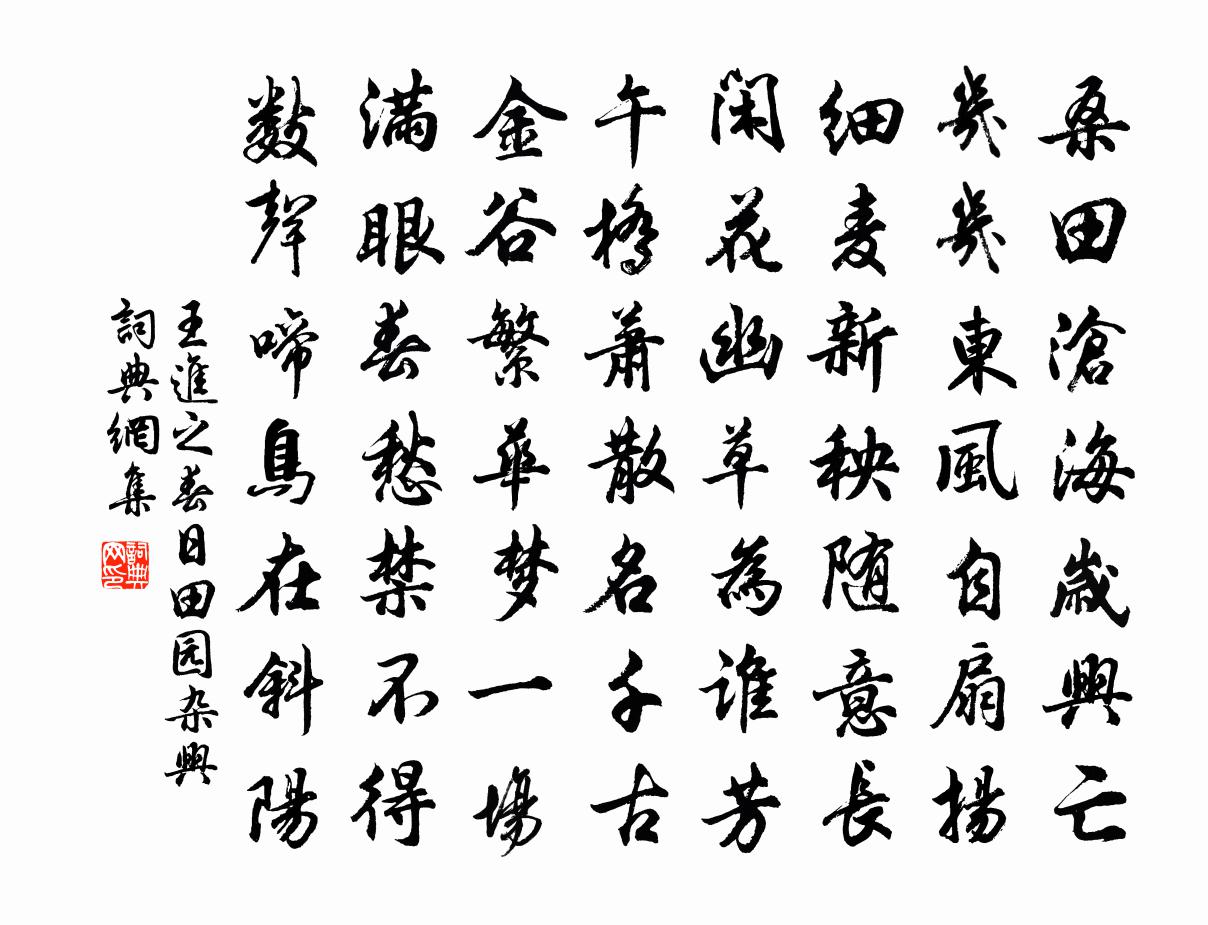 桑田滄海歲興亡
幾幾東風自扇揚
细麦新秧随意長
闲花幽草為谁芳
午橋萧散名千古
金谷繁華梦一場
满眼春愁禁不得
数聲啼鳥在斜陽
王進之春日田园杂興
詞典網集
詞典
网印